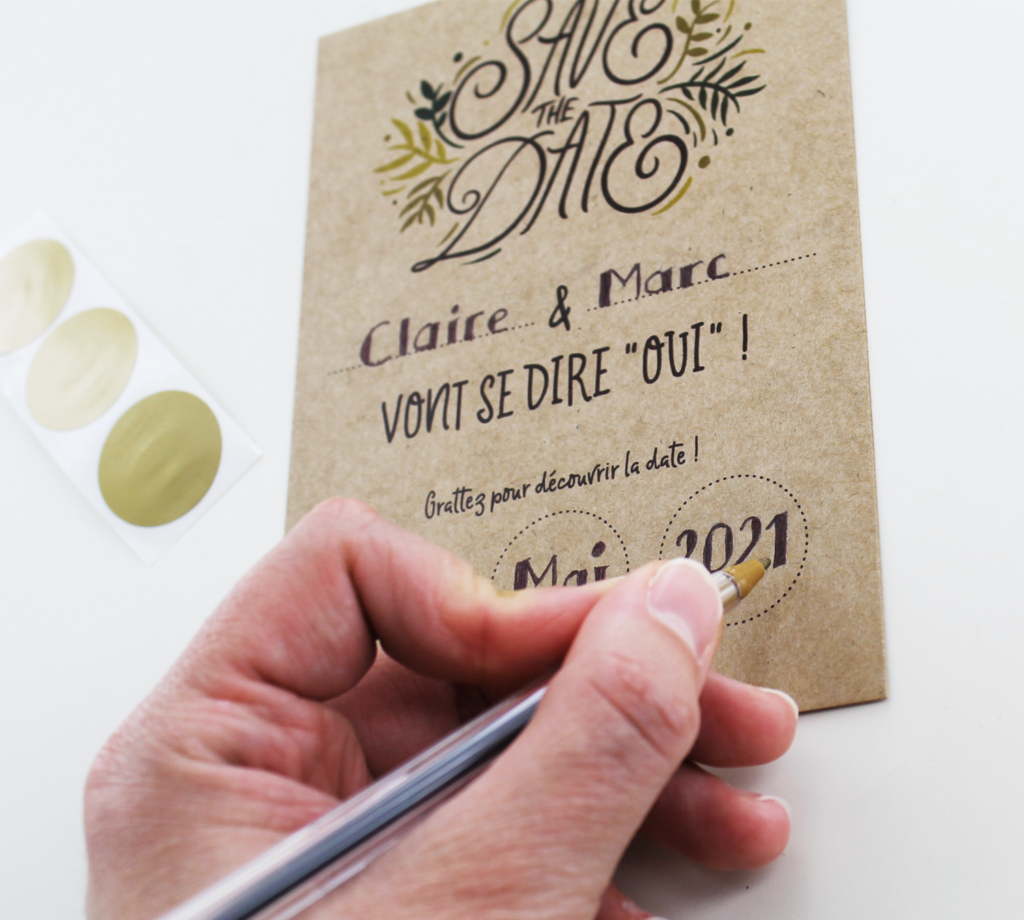 SAVE
THE
DATE
Claire & Marc
VONT SE DIRE "OUI" !
Grattez pour découvrir la date !
Mai 2021